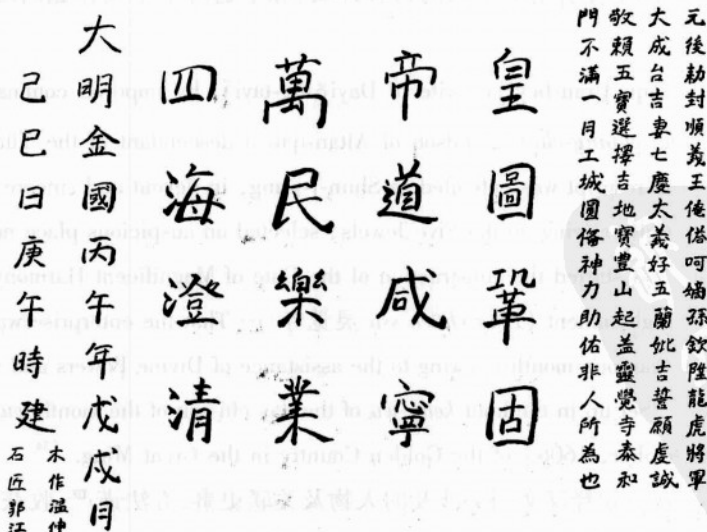 元後勅封順義王俺答呵嫡孫欽陞龍虎將軍
大成台吉妻七慶大義好五蘭妣吉誓願虔誠
敬賴五寶選擇吉地寶豊山起盖靈覺寺泰和
門不滿一月工城圓偹神力助佑非人所為也
皇圖鞏固
帝道咸寧
萬民樂業
四海澄清
大明金國丙午年戊戌月
己巳日庚午時建
木作温伸
石匠郭江